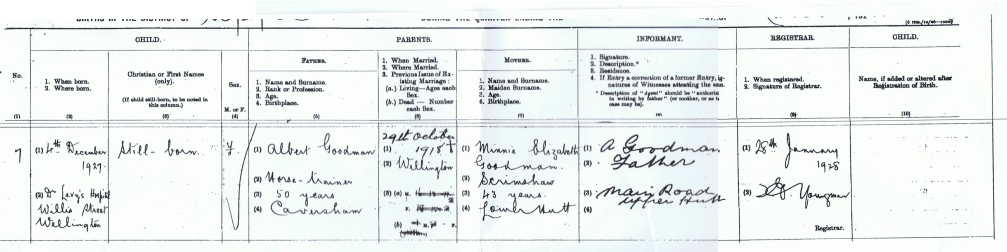 BIRTHS IN THE DISTRICT OF
DURING THE QUARTER ENDING THE
CHILD.
PARENTS.
INFORMANT.
REGISTRAR.
CHILD.
No.
1. When born.
2. Where born.
Christian or First Names
(only).
(If child still-born, to be noted in
this column.)
Sex.
M. or F.
FATHER.
1. Name and Surname.
2. Rank or Profession.
3. Age.
4. Birthplace.
1. When Married.
2. Where Married.
3. Previous Issue of Ex-
isting Marriage:
(a.) Living—Ages each
Sex.
(b.) Dead — Number
each Sex.
MOTHER.
1. Name and Surname.
2. Maiden Surname.
3. Age.
4. Birthplace.
1. Signature.
2. Description.*
3. Residence.
4. If Entry a correction of a former Entry, sig-
natures of Witnesses attesting the same.
* Description of "Agent" should be "authoris
in writing by father" (or mother, or as t
case may be).
1. When registered.
2. Signature of Registrar.
Name, if added or altered after
Registration of Birth.
(1) (2) (3) (4) (5) (6) (7) (8) (9) (10)
7
(1) 4th December
1927.
(2) Dr Levy's Hospital
Willis Street
Wellington
Still-born.
F
(1) Albert Goodman
(2) Horse-trainer
(3) 50 years
(4) Caversham
29th October
(1) 1918
(2) Wellington
(3) (a)
(b)
(1) Minnie Elizabeth
Goodman.
(2) Scrimshaw
(3) 43 years.
(4) Lower Hutt
(1) A Goodman
(2) Father
(3) Main Road
Upper Hutt
(4)
(1) 28th January
1928
(2) Youngman
Registrar.